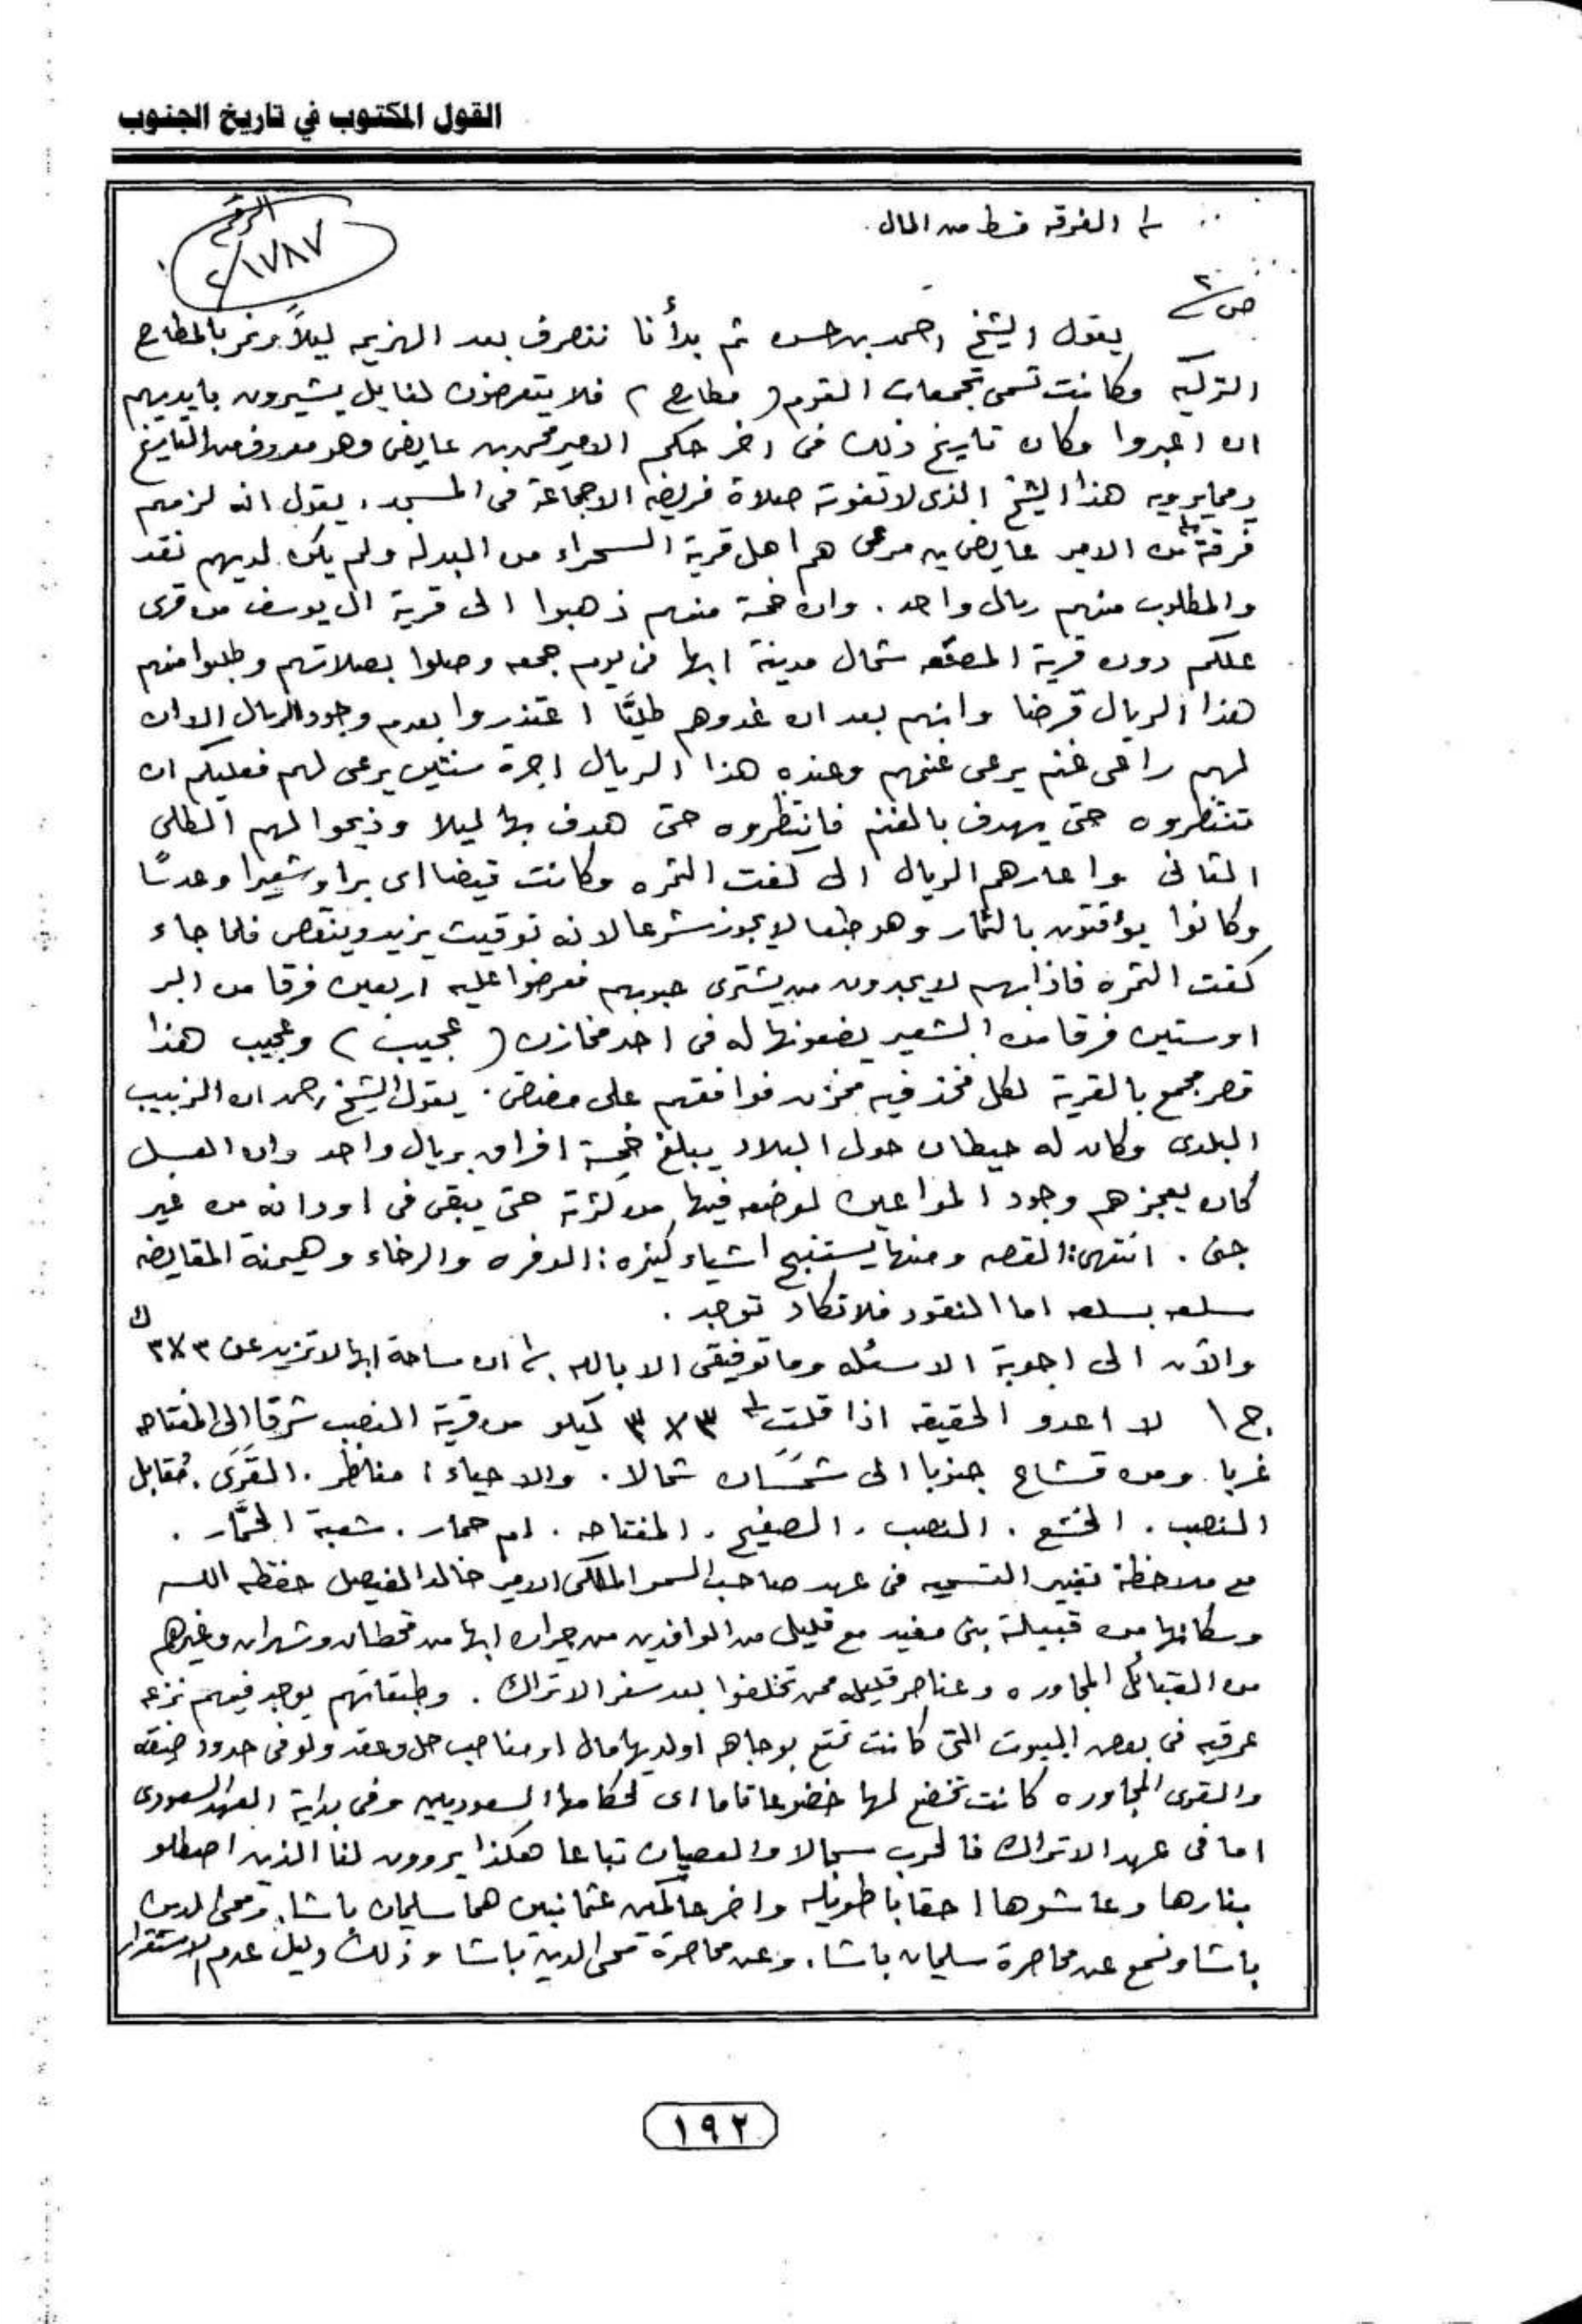 القول المكتوب في تاريخ الجنوب
الرقم
٢/١٧٨٧
١/ الفرقه قسط من المال.
ص٢
يقول الشيخ احمد بن حسن ثم بدأنا ننصرف بعد الهزيمه ليلاً ونمر بالمطارح
التركيه وكانت تسمى تجمعات القوم (مطارح) فلا يتعرضون لنا بل يشيرون بايديهم
ان اعبروا وكان تاريخ ذلك في اخر حكم الامير محمد بن عايض وهو معروف من التاريخ
ومما يرويه هذا الشيخ الذي لا تفوته صلاة فريضه الا جماعة في المسجد، يقول انه لزمهم
فرقة من الامير عايض بن مرعى هم اهل قرية السحراء من البدله ولم يكن لديهم نقد
والمطلوب منهم ريال واحد. وان خمسة منهم ذهبوا الى قرية ال يوسف من قرى
علكم دون قرية المصنعه شمال مدينة ابها في يوم جمعه وصلوا بصلاتهم وطلبوا منهم
هذا الريال قرضا وانهم بعد ان غدوهم طليًّا اعتذروا بعدم وجود الريال الا ان
لهم راعى غنم يرعى غنمهم وعنده هذا الريال اجرة سنتين يرعى لهم فعليكم ان
تنتظروه حتى يهدف بالغنم فانتظروه حتى هدف بها ليلا وذبحوا لهم الطلى
الثانى واعارهم الريال الى كفت الثمره وكانت قيضا اى برا وشعيرا وعدسًا
وكانوا يؤقتون بالثمار وهو طبعا لا يجوز شرعا لانه توقيت يزيد وينقص فلما جاء
كفت الثمره فاذا بهم لا يجدون من يشترى حبوبهم فعرضوا عليه اربعين فرقا من البر
او ستين فرقا من الشعير يضعونها له في احد مخازن (عجيب) وعجيب هذا
قصر مجمع بالقرية لكل فخذ فيه مخزن فوافقهم على مضض. يقول الشيخ احمد ان الزبيب
البلدى وكان له حيطان حول البلاد يبلغ خمسة افراق بريال واحد وان العسل
كان يعجزهم وجود المواعين لوضعه فيها من كثرته حتى يبقى في اودانه من غير
جنى. انتهى: القصه ومنها يستنتج اشياء كثيره: الوفره والرخاء وهيمنة المقايضه
سلعه بسلعه اما النقود فلا تكاد توجد.
والآن الى اجوبة الاسئله وما توفيقى الا بالله. ١/ ان مساحة ابها لا تزيد عن ٣×٣ ك
ج١ لا اعدو الحقيقه اذا قلت ٣×٣ كيلو من قرية النصب شرقا الى المفتاحه
غربا. ومن قشاع جنوبا الى شمَسَان شمالا. والاحياء: مناظر. القَرَى. مُقابل
النصب. الخشع. النصب. الصفيح. المفتاحه. ام حمار. شعبة الحمَّار.
مع ملاحظة تغيير التسميه في عهد صاحب السمو الملكى الامير خالد الفيصل حفظه الله
وسكانها من قبيلة بنى مغيد مع قليل من الوافدين من جيران ابها من قحطان وشهران وغيرهم
من القبائل المجاوره وعناصر قليله ممن تخلفوا بعد سفر الاتراك. وطبقاتهم يوجد فيهم نزعه
عرقيه في بعض البيوت التى كانت تمتع بوجاهه او لديها مال او مناصب حل وعقد ولو في حدود ضيقه
والقرى المجاوره كانت تخضع لها خضوعا تاما اى لحكامها السعوديين وفى بداية العهد السعودى
اما في عهد الاتراك فالحرب سجالا والعصيان تباعا هكذا يروون لنا الذين اصطلو
بنارها وعاشوها احقابا طويله واخر حاكمين عثمانيين هما سليمان باشا. ومحى الدين
باشا ونسمع عن محاصرة سليمان باشا. وعن محاصرة محى الدين باشا وذلك دليل عدم الاستقرار
١٩٢